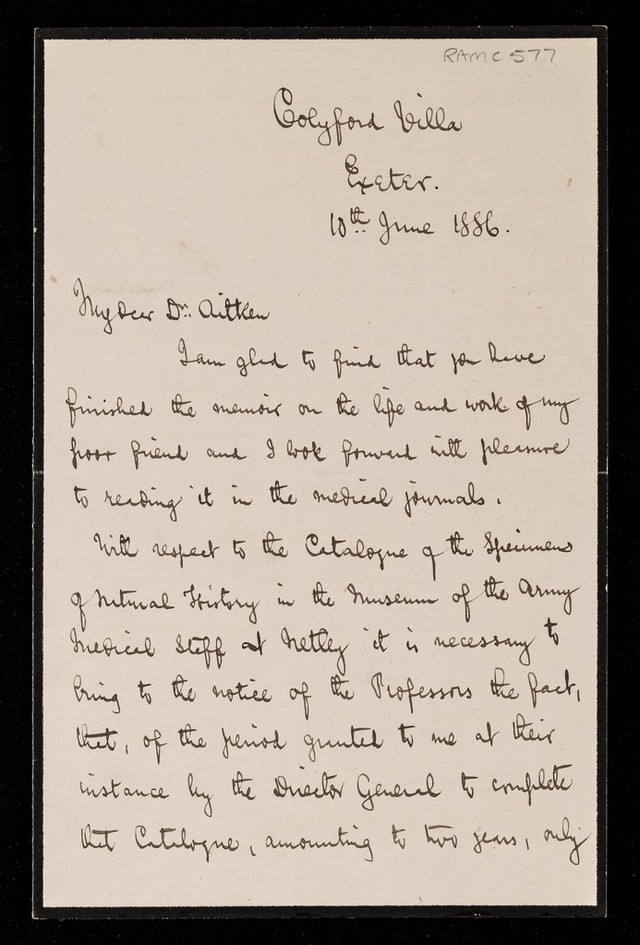 RAMC 577
Colyford Villa
Exeter.
10th June 1886.
My dear Dr. Aitken
I am glad to find that you have
finished the memoir on the life and work of my
poor friend and I look forward with pleasure
to reading it in the medical journals.
With respect to the Catalogue of the Specimens
of Natural History in the Museum of the Army
Medical Staff at Netley it is necessary to
bring to the notice of the Professors the fact,
that, of the period granted to me at their
instance by the Director General to complete
that Catalogue, amounting to two years, only